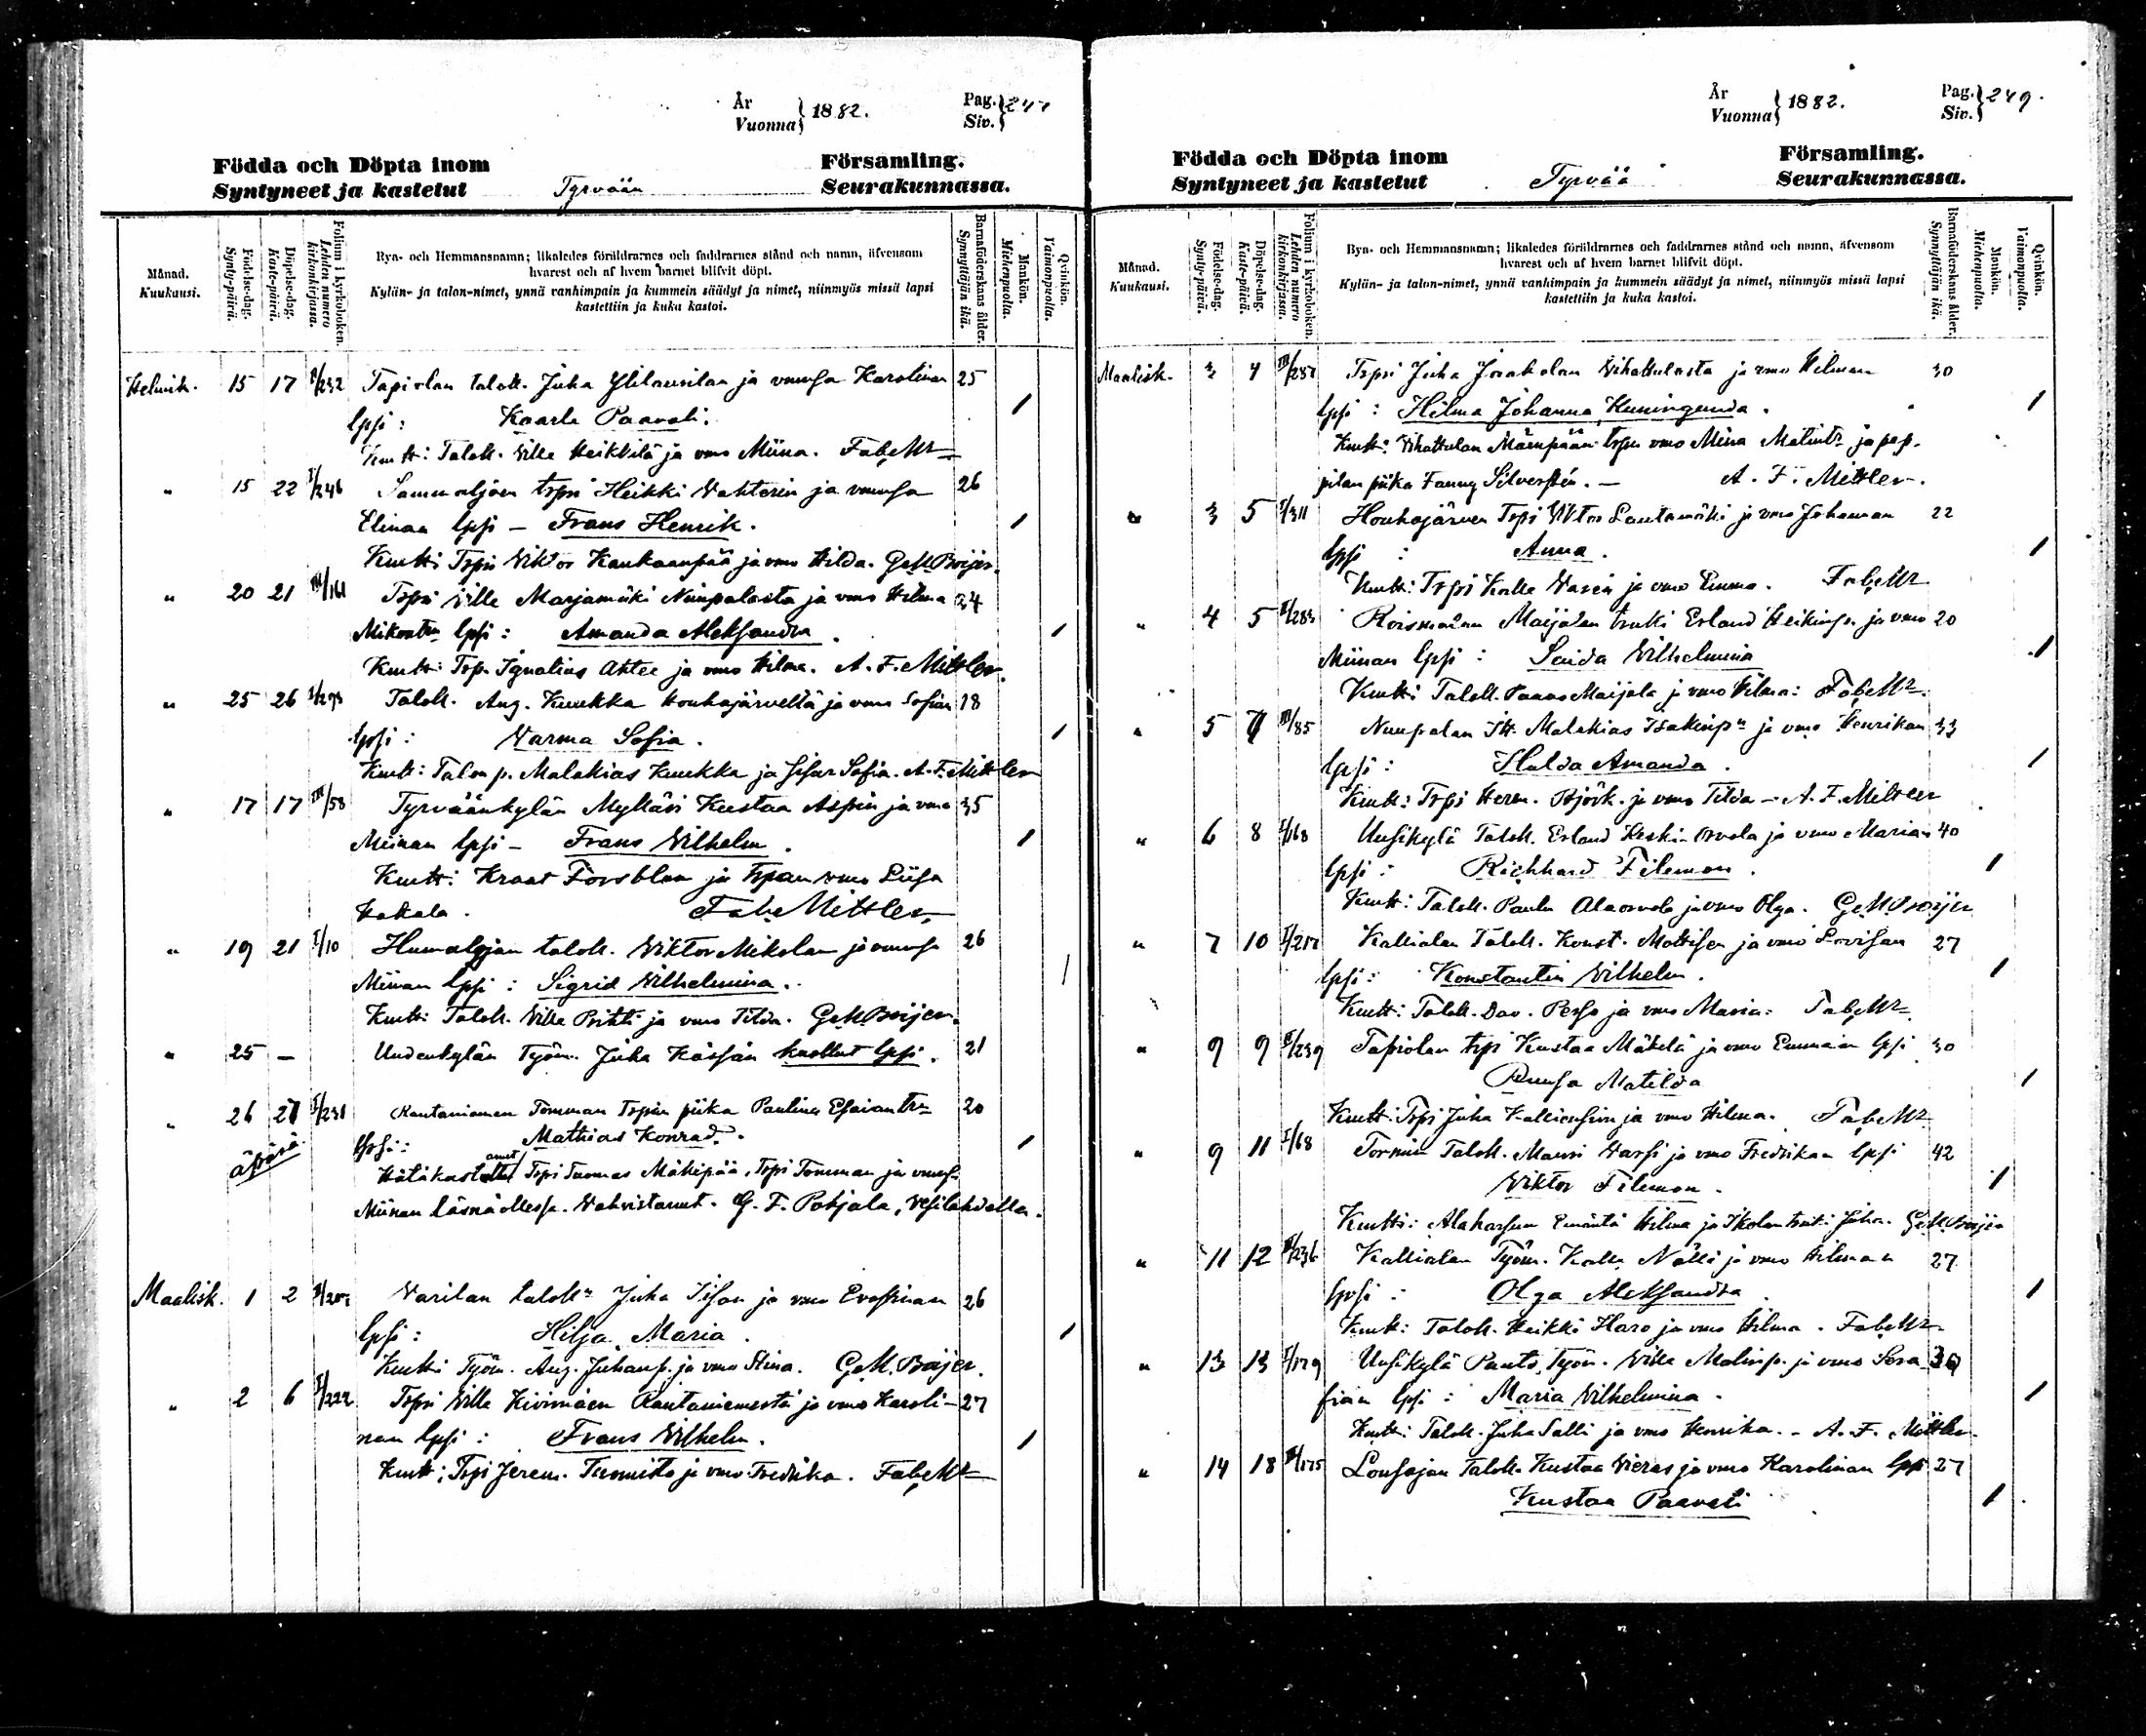 År
Vuonna } 1882.
Pag.
Siv. } 247
Födda och Döpta inom Församling.
Syntyneet ja kastetut Tyrvään Seurakunnassa.
Månad.
Kuukausi.
Födelse-dag.
Synty-päivä.
Döpelse-dag.
Kaste-päivä.
Folium i kyrkoboken.
Lehden numero kirkonkirjassa.
Bya- och Hemmansnamn; likaledes föräldrarnes och faddrarnes stånd och namn, äfvensom
hvarest och af hvem barnet blifvit döpt.
Kylän- ja talon-nimet, ynnä vanhimpain ja kummein säädyt ja nimet, niinmyös missä lapsi
kastettiin ja kuka kastoi.
Barnaföderskans ålder.
Synnyttäjän ikä.
Mankön.
Miehenpuolta.
Qvinkön.
Vaimonpuolta.
Helmik. 15 17 Tapiolan talok. Juha Ylilausilan ja vmnsa Karolinan 25
lpsi: Kaarle Paavali. /
Kmtt: Talok. Ville Heikkilä ja vmo Miina. FabeMr
" 15 22 I/246 Sammaljoen trpri Heikki Vahterin ja vmnsa 26
Elinan lpsi – Frans Henrik. /
Kmtt: Trpri Viktor Kankaanpää ja vmo Hilda. GeMBoijer.
" 20 21 III/161 Trpri Ville Marjamäki Nuupalasta ja vmo Hilma 24
Mikontr lpsi: Amanda Aleksandra. /
Kmtt: Trp. Ignatius Ahtee ja vmo Hilma. A. F. Mittler.
" 25 26 Talok. Aug. Kuukka Houhajärveltä ja vmo Sofian 18
lpsi: Varma Sofia. /
Kmtt: Talon p. Malakias Kuukka ja sisar Sofia. A. F. Mittler
" 17 17 III/58 Tyrväänkylän Mylläri Kustaa Aspin ja vmo 35
Miinan lpsi – Frans Vilhelm. /
Kmtt: Kraat. Forsblom ja trpan vmo Liisa
Kakala. FabeMittler.
" 19 21 I/10 Humalojan talok. Viktor Mikolan ja vmnsa 26
Miinan lpsi: Sigrid Vilhelmina. /
Kmtt: Talok. Ville Prihti ja vmo Tilda. GeMBoijer.
" 25 – Uudenkylän Työm. Juha Kässän kuollut lpsi. 21
" 26 27 I/231 Rautaniemen Tomman Trprin piika Paulina Esaiantr 20
äpärä lpsi: Mathias Konrad. /
Hätäkastanut Trpri Tuomas Mähipää, Trpri Tomman ja vmnsa
Miinan läsnä ollessa. Vahvistanut. G. F. Pohjala, Vesilahdella.
Maalisk. 1 2 Varilan talok. Juha Iison ja vmo Evastinan 26
lpsi: Hilja Maria. /
Kmtt: Työm. Aug. Juhanp. ja vmo Stina. GeM.Boijer.
" 2 6 I/222 Trpri Ville Kivimäen Rautaniemestä ja vmo Karoli- 27
nan lpsi: Frans Vilhelm. /
Kmtt: Trpri Jerem. Tunniste ja vmo Fredrika. FabeMr
År
Vuonna } 1882.
Pag.
Siv. } 249.
Födda och Döpta inom Församling.
Syntyneet ja kastetut Tyrvää Seurakunnassa.
Månad.
Kuukausi.
Födelse-dag.
Synty-päivä.
Döpelse-dag.
Kaste-päivä.
Folium i kyrkoboken.
Lehden numero kirkonkirjassa.
Bya- och Hemmansnamn; likaledes föräldrarnes och faddrarnes stånd och namn, äfvensom
hvarest och af hvem barnet blifvit döpt.
Kylän- ja talon-nimet, ynnä vanhimpain ja kummein säädyt ja nimet, niinmyös missä lapsi
kastettiin ja kuka kastoi.
Barnaföderskans ålder.
Synnyttäjän ikä.
Mankön.
Miehenpuolta.
Qvinkön.
Vaimonpuolta.
Maalisk. 3 4 III/257 Trpri Juha Jaakolan Vihattulasta ja vmo Hilman 30
lpsi: Hilma Johanna Kuningunda. /
Kmtt: Vihattulan Mäenpään trpn vmo Miina Matintr ja pap-
pilan piika Fanny Silverstén. – A. F. Mittler.
" 3 5 I/311 Houhajärven Trpri Viktor Lautamäki ja vmo Johannan 22
lpsi: Anna. /
Kmtt: Trpri Kalle Varén ja vmo Emma. FabeMr
" 4 5 Roismalan Maijalan truki Erland Heikinp. ja vmo 20
Miinan lpsi: Senida Vilhelmina /
Kmtt: Talok. Paavo Maijala ja vmo Hilma: FabeMr.
" 5 7 III/85 Nuupalan Itl. Malakias Isakinp. ja vmo Henrikan 33
lpsi: Hulda Amanda. /
Kmtt: Trpri Herm. Björk. ja vmo Tilda – A. F. Mittler
" 6 8 I/168 Uusikylä Talok. Erland Keski-Orvola ja vmo Marian 40
lpsi: Richhard Filemon. /
Kmtt: Talok. Paulu Alaorvola ja vmo Olga. GeMBoijer
" 7 10 I/217 Kallialan Talok. Konst. Mattisen ja vmo Lovisan 27
lpsi: Konstantin Vilhelm. /
Kmtt: Talok. Dav. Pesso ja vmo Maria: FabeMr
" 9 9 Tapiolan trpri Kustaa Mäkelä ja vmo Emman lpsi 30
Ruusa Matilda /
Kmtt: Trpri Juha Kalliensivu ja vmo Hilma. FabeMr
" 9 11 I/68 Tormin Talok. Mauri Vassi ja vmo Fredrikan lpsi 42
Viktor Filemon. /
Kmtt: Alaharsun Emäntä Hilma ja Ikolan truki Juha. GeMBoijer
" 11 12 Kallialan Työm. Kalle Nälli ja vmo Hilman 27
lpsi: Olga Aleksandra. /
Kmtt: Talok. Heikki Haro ja vmo Hilma. FabeMr.
" 13 13 I/179 Uusikylä Punto, Työm. Ville Malinp. ja vmo Sera- 39
fian lpsi: Maria Vilhelmina. /
Kmtt: Talok. Juha Salli ja vmo Henrika. – A. F. Mittler.
" 14 18 Lousajan Talok. Kustaa Vieras ja vmo Karolinan lpsi 27
Kustaa Paavali /